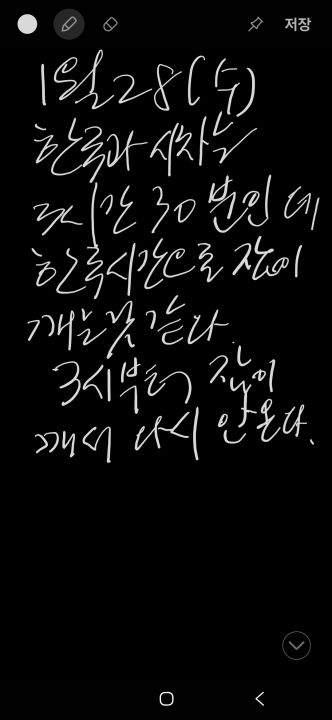 저장
1월 28(수)
한국과 시차는
3시간 30분인데
한국시간으로 잠이
깨는것 같다.
3시부터 잠이
깨서 다시 안온다.